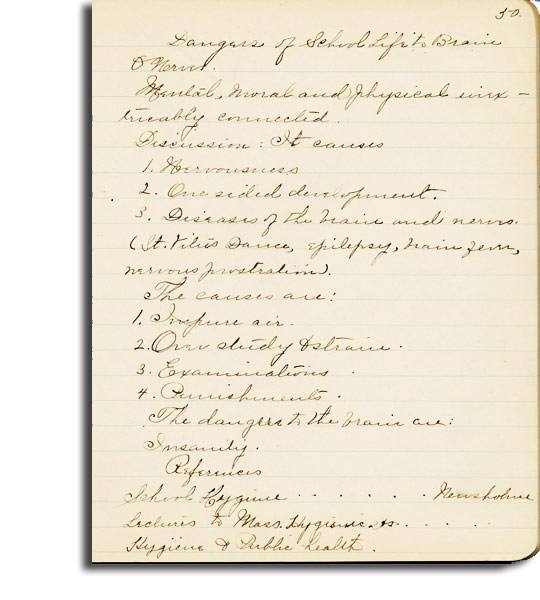 50.
Dangers of School Life to Brain
& Nerves.
Mental, moral and physical inex-
tricably connected.
Discussion: It causes
1. Nervousness
2. One sided development.
3. Diseases of the brain and nerves.
(St. Vitus Dance, epilepsy, brain fever,
nervous prostration).
The causes are:
1. Impure air.
2. Over study & strain.
3. Examinations.
4. Punishments.
The dangers to the brain are:
Insanity.
References
School Hygiene . . . . . . Newsholme
Lectures to Mass. Hygienic . . . . .
Hygiene & Public Health.